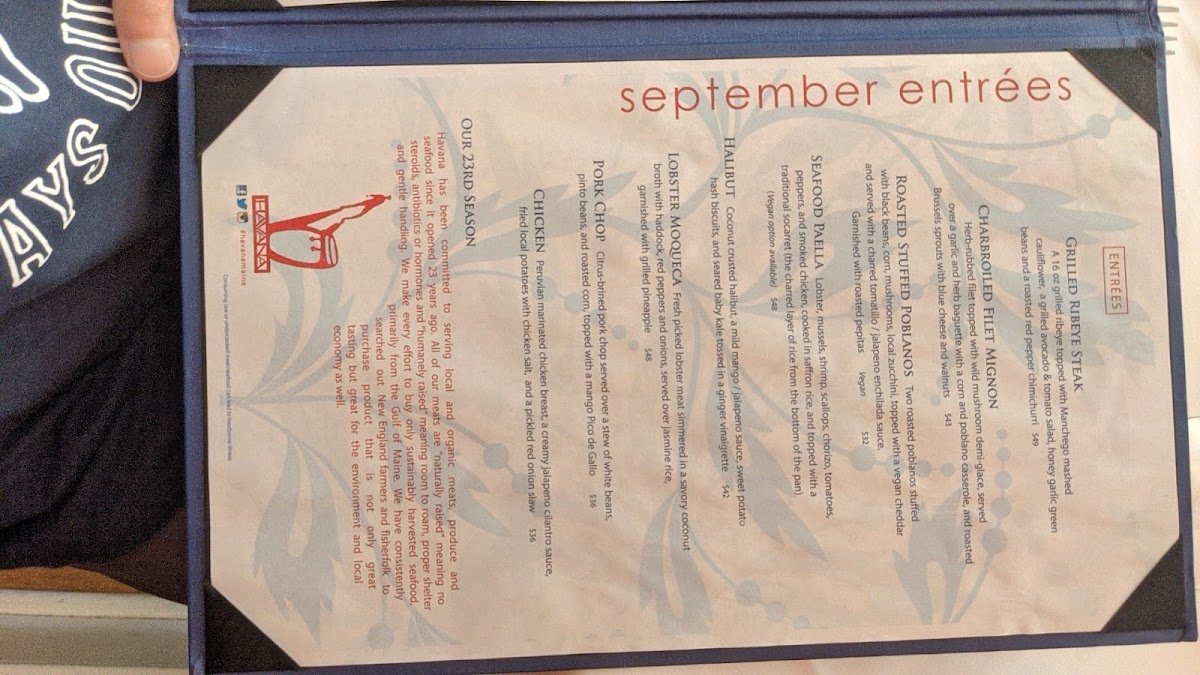 september entrées
ENTRÉES
GRILLED RIBEYE STEAK
A 16 oz grilled ribeye topped with Manchego mashed
cauliflower, a grilled avocado & tomato salad, honey garlic green
beans and a roasted red pepper chimichurri $49
CHARBROILED FILET MIGNON
Herb-rubbed filet topped with wild mushroom demi-glace, served
over a garlic and herb baguette with a corn and poblano casserole, and roasted
Brussels sprouts with blue cheese and walnuts $43
ROASTED STUFFED POBLANOS Two roasted poblanos stuffed
with black beans, corn, mushrooms, local zucchini, topped with a vegan cheddar
and served with a charred tomatillo / jalapeno enchilada sauce.
Garnished with roasted pepitas Vegan $32
SEAFOOD PAELLA Lobster, mussels, shrimp, scallops, chorizo, tomatoes,
peppers, and smoked chicken, cooked in saffron rice, and topped with a
traditional socarret (the charred layer of rice from the bottom of the pan)
(Vegan option available) $48
HALIBUT Coconut crusted halibut, a mild mango / jalapeno sauce, sweet potato
hash biscuits, and seared baby kale tossed in a ginger vinaigrette $42
LOBSTER MOQUECA Fresh picked lobster meat simmered in a savory coconut
broth with haddock, red peppers and onions, served over jasmine rice,
garnished with grilled pineapple $48
PORK CHOP Citrus-brined pork chop served over a stew of white beans,
pinto beans, and roasted corn, topped with a mango Pico de Gallo $36
CHICKEN Peruvian marinated chicken breast, a creamy jalapeno cilantro sauce,
fried local potatoes with chicken salt, and a pickled red onion slaw $36
OUR 23RD SEASON
Havana has been committed to serving local and organic meats, produce and
seafood since it opened 23 years ago. All of our meats are "naturally raised" meaning no
steroids, antibiotics or hormones and "humanely raised" meaning room to roam, proper shelter
and gentle handling. We make every effort to buy only sustainably harvested seafood,
primarily from the Gulf of Maine. We have consistently
searched out New England farmers and fisherfolk to
purchase product that is not only great
tasting but great for the environment and local
economy as well.
HAVANA
#havanamaine
Consuming raw or undercooked meat/seafood can lead to foodborne illness
AYS